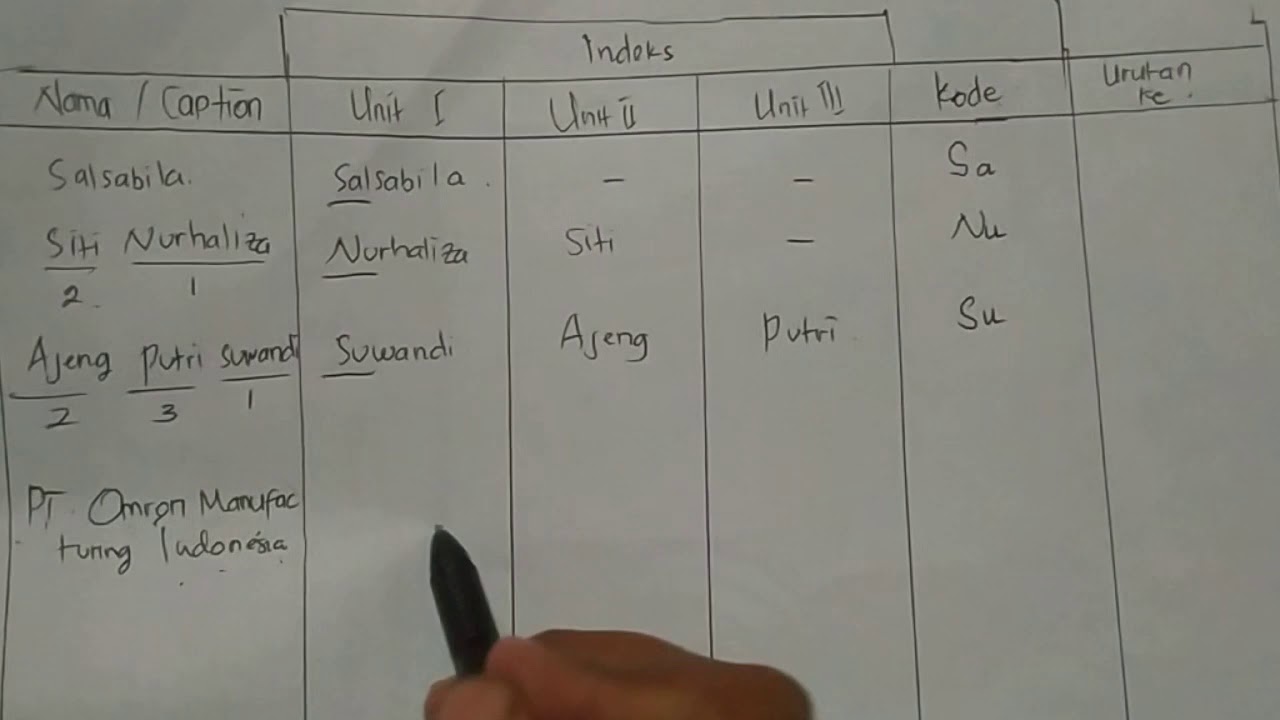 Indeks
Nama / Caption Unit I Unit II Unit III Kode Urutan
ke.
Salsabila. Salsabila. - - Sa
Siti Nurhaliza Nurhaliza Siti - Nu
2. 1
Ajeng Putri Suwandi Suwandi Ajeng Putri Su
2 3 1
PT. Omron Manufac
turing Indonesia